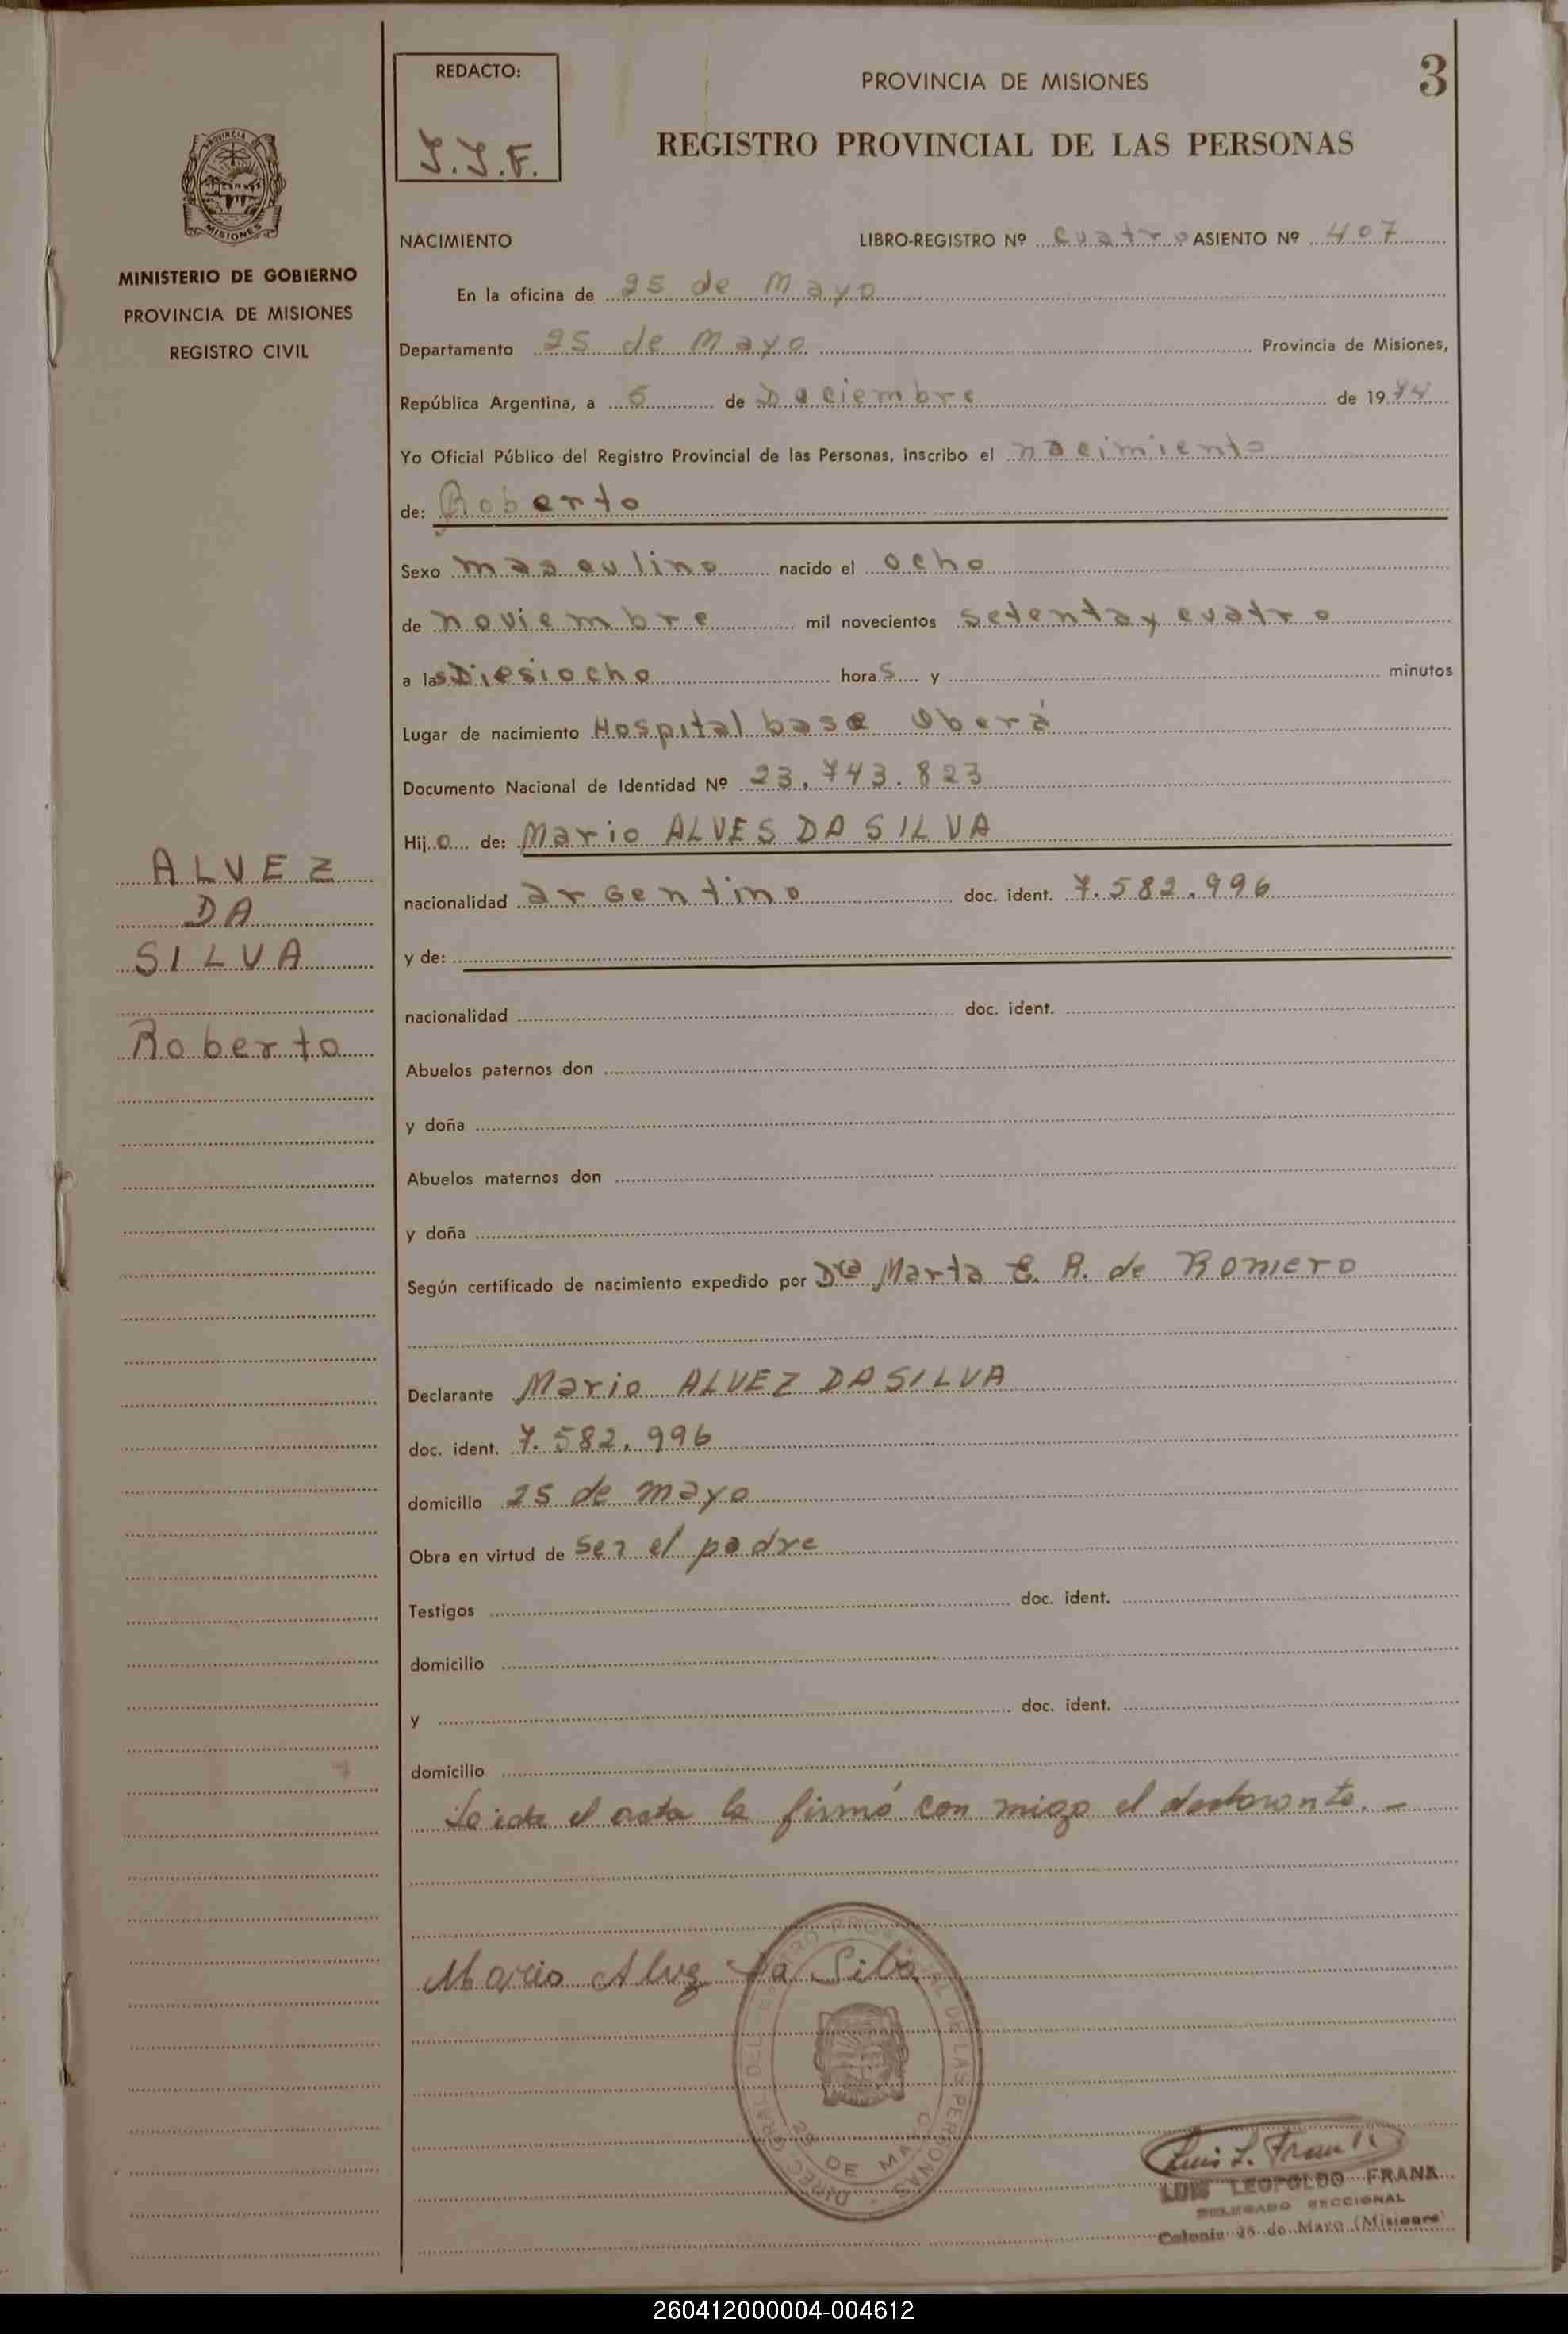 REDACTO:
J.J.F.
PROVINCIA DE MISIONES
3
REGISTRO PROVINCIAL DE LAS PERSONAS
PROVINCIA
MISIONES
MINISTERIO DE GOBIERNO
PROVINCIA DE MISIONES
REGISTRO CIVIL
NACIMIENTO
LIBRO-REGISTRO Nº cuatro ASIENTO Nº 407
En la oficina de 25 de Mayo
Departamento 25 de Mayo Provincia de Misiones,
República Argentina, a 6 de Daciembre de 1974
Yo Oficial Público del Registro Provincial de las Personas, inscribo el nacimiento
de: Roberto
Sexo masculino nacido el ocho
de noviembre mil novecientos setenta y cuatro
a las Diesiocho horas y minutos
Lugar de nacimiento Hospital base Oberá
Documento Nacional de Identidad Nº 23.743.823
Hijo de: Mario ALVES DA SILVA
nacionalidad argentino doc. ident. 7.582.996
y de:
nacionalidad doc. ident.
Abuelos paternos don
y doña
Abuelos maternos don
y doña
Según certificado de nacimiento expedido por Dra Marta E. R. de Romero
Declarante Mario ALVEZ DA SILVA
doc. ident. 7.582.996
domicilio 25 de mayo
Obra en virtud de ser el padre
Testigos doc. ident.
domicilio
y doc. ident.
domicilio
Leida el acta la firmó con migo el declarante.-
ALVEZ
DA
SILVA
Roberto
Mario Alvez Da Silva
DIREC. GRAL. DEL REGISTRO PROVINCIAL DE LAS PERSONAS
25 DE MAYO
Luis L. Frank
LUIS LEOPOLDO FRANK
DELEGADO SECCIONAL
Colonia 25 de Mayo (Misiones)
260412000004-004612